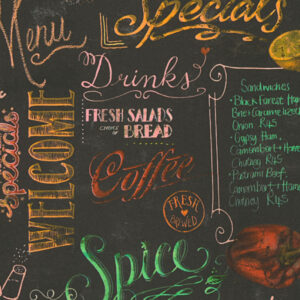 Menu
Specials
Drinks
FRESH SALADS
CHOICE OF BREAD
specials
WELCOME
Coffee
FRESH
BREWED
Spice
Sandwiches
• Black Forest Ham
Brie + Caramelized
Onion R45
• Gypsy Ham,
Camembert + Home
Chutney R45
• Pastrami Beef,
Camembert + Home
Chutney R45